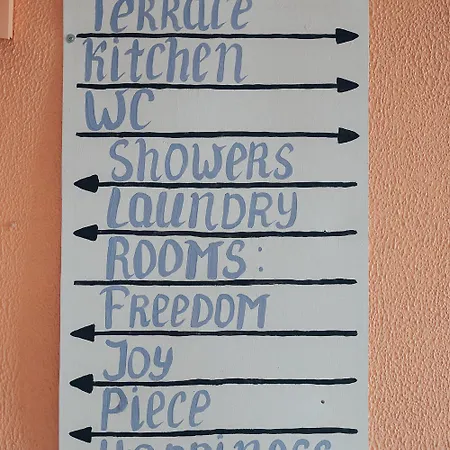 Terrace
Kitchen
WC
Showers
Laundry
ROOMS:
FREEDOM
Joy
Piece
Happiness